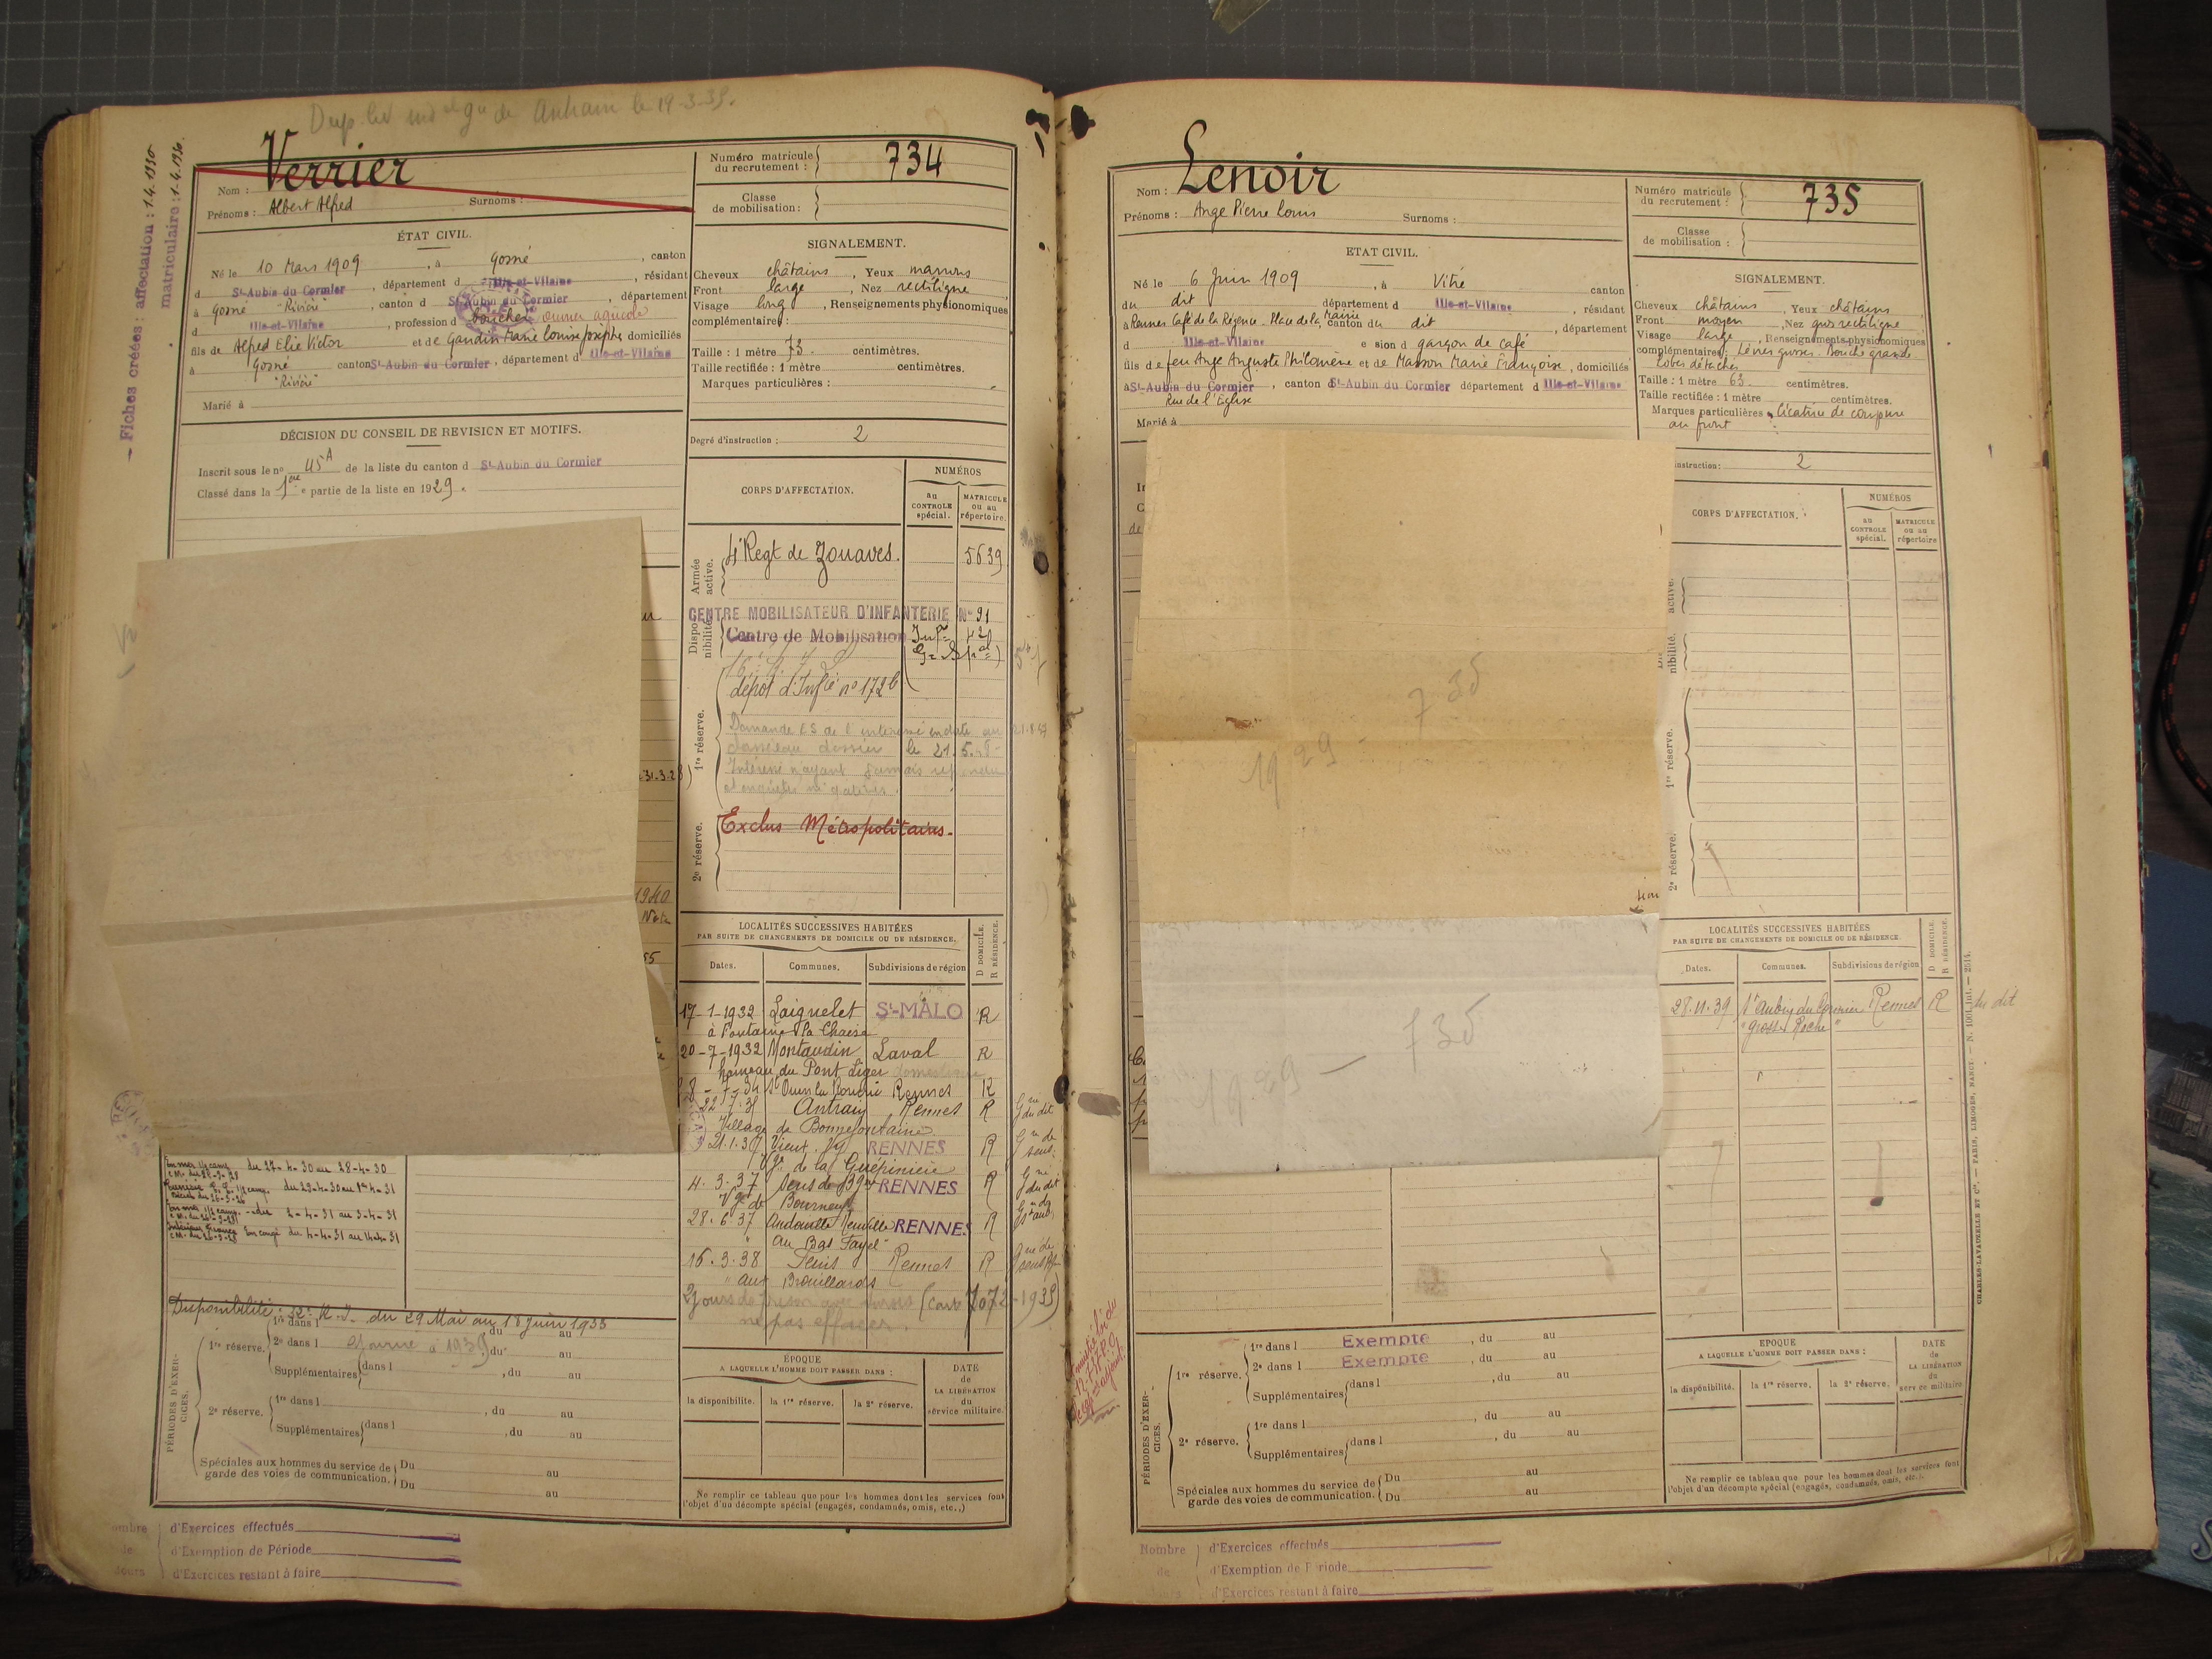 Dup. liv le 19-3-35.
Fiches créées : affectation : 1.4.1930
matriculaire : 1-4-1930.
Nom : Verrier
Prénoms : Albert Alfred Surnoms :
Numéro matricule du recrutement : 734
Classe de mobilisation :
ÉTAT CIVIL.
Né le 10 Mars 1909, à Gosné, canton
d St-Aubin du Cormier, département d Ille-et-Vilaine, résidant
à Gosné "Rivière", canton d St-Aubin du Cormier, département
d Ille-et-Vilaine, profession d boucher ouvrier agricole
fils de Alfred Elie Victor et de Gaudin Marie Louise Josèphe domiciliés
à Gosné canton St-Aubin du Cormier, département d Ille-et-Vilaine
"Rivière"
Marié à
SIGNALEMENT.
Cheveux châtains, Yeux marrons
Front large, Nez rectiligne
Visage long, Renseignements physionomiques
complémentaires :
Taille : 1 mètre 73 centimètres.
Taille rectifiée : 1 mètre centimètres.
Marques particulières :
Degré d'instruction : 2
DÉCISION DU CONSEIL DE REVISION ET MOTIFS.
Inscrit sous le no 45A de la liste du canton d St-Aubin du Cormier
Classé dans la 1ère e partie de la liste en 1929.
CORPS D'AFFECTATION.
NUMÉROS
au CONTROLE spécial.
MATRICULE ou au répertoire.
Armée active.
4e Regt de Zouaves. 5639
CENTRE MOBILISATEUR D'INFANTERIE No 91
Disponibilité.
Centre de Mobilisation
dépôt d'Infie no 172b
1re réserve.
le 21.5.
Intéressé n'ayant jamais répondu
2e réserve.
Exclus Métropolitains.
31-3-28)
1940
55
LOCALITÉS SUCCESSIVES HABITÉES
PAR SUITE DE CHANGEMENTS DE DOMICILE OU DE RÉSIDENCE.
Dates. Communes. Subdivisions de région D DOMICILE. R RÉSIDENCE.
17-1-1932 Laignelet St-MALO R
à Fontaine la Chaise
20-7-1932 Montaudin Laval R
hameau du Pont Liger domestique
St Ouen la Rouërie Rennes R
22.7.35 Antrain Rennes R Gie du dit
Village de Bonnefontaine
21.1.37 Vieux Vy RENNES R Gie de sens
Vge de la Guépinière
4.3.37 Sens de Bgne RENNES R Gie du dit
Vge de Bourneuf
28.6.37 Andouillé Neuville RENNES R Gie de St Aub.
au Bas Fayel
16.3.38 Sens Rennes R Gie de sens
"aux Brouillards
2 jours de prison avec sursis (carte 7072-1938)
ne pas effacer.
du 27-4-30 au 28-4-30
du 29-4-30 au 1er 4-31
du 2-4-31 au 3-4-31
En congé du 4-4-31 au 14-4-31
Disponibilité : 32e R.I. du 29 Mai au 18 juin 1933
PÉRIODES D'EXERCICES.
1re réserve.
1re dans l , du au
2e dans l , du au
Supplémentaires dans l , du au
2e réserve.
1re dans l , du au
Supplémentaires dans l , du au
Spéciales aux hommes du service de garde des voies de communication. Du au
Du au
ÉPOQUE
A LAQUELLE L'HOMME DOIT PASSER DANS :
la disponibilité. la 1re réserve. la 2e réserve.
DATE de LA LIBÉRATION du service militaire.
Ne remplir ce tableau que pour les hommes dont les services font
l'objet d'un décompte spécial (engagés, condamnés, omis, etc.,)
Nombre de Jours
d'Exercices effectués
d'Exemption de Période
d'Exercices restant à faire
Nom : Lenoir
Prénoms : Ange Pierre Louis Surnoms :
Numéro matricule du recrutement : 735
Classe de mobilisation :
ETAT CIVIL.
Né le 6 Juin 1909, à Vitré canton
du dit département d Ille-et-Vilaine, résidant
à Rennes Café de la Régence. Place de la Mairie canton du dit, département
d Ille-et-Vilaine e sion d garçon de café
fils de feu Ange Auguste Philomène et de Masson Marie Françoise, domiciliés
à St-Aubin du Cormier, canton d St-Aubin du Cormier département d Ille-et-Vilaine
Rue de l'Eglise
Marié à
SIGNALEMENT.
Cheveux châtains, Yeux châtains
Front moyen, Nez gros rectiligne
Visage large, Renseignements physionomiques
complémentaires : Lèvres grosses. Bouche grande
Lobes détachés
Taille : 1 mètre 63 centimètres.
Taille rectifiée : 1 mètre centimètres.
Marques particulières : Cicatrice de coupure
au front
instruction : 2
CORPS D'AFFECTATION.
NUMÉROS
au CONTROLE spécial.
MATRICULE ou au répertoire
active.
nibilité.
1re réserve.
2e réserve.
1929 - 735
1929 - 735
LOCALITÉS SUCCESSIVES HABITÉES
PAR SUITE DE CHANGEMENTS DE DOMICILE OU DE RÉSIDENCE.
Dates. Communes. Subdivisions de région D DOMICILE. R RÉSIDENCE.
28.11.39 St Aubin du Cormier Rennes R du dit
"Grosse Roche"
PÉRIODES D'EXERCICES.
1re réserve.
1re dans l Exempte , du au
2e dans l Exempte , du au
Supplémentaires dans l , du au
2e réserve.
1re dans l , du au
Supplémentaires dans l , du au
Spéciales aux hommes du service de garde des voies de communication. Du au
Du au
EPOQUE
A LAQUELLE L'HOMME DOIT PASSER DANS :
la disponibilité. la 1re réserve. la 2e réserve.
DATE de LA LIBÉRATION du service militaire
Ne remplir ce tableau que pour les hommes dont les services font
l'objet d'un décompte spécial (engagés, condamnés, omis, etc.).
CHARLES-LAVAUZELLE ET Cie. — PARIS, LIMOGES, NANCY. — N. 1001 Int. — 2514.
Nombre de
d'Exercices effectués
d'Exemption de Période
d'Exercices restant à faire